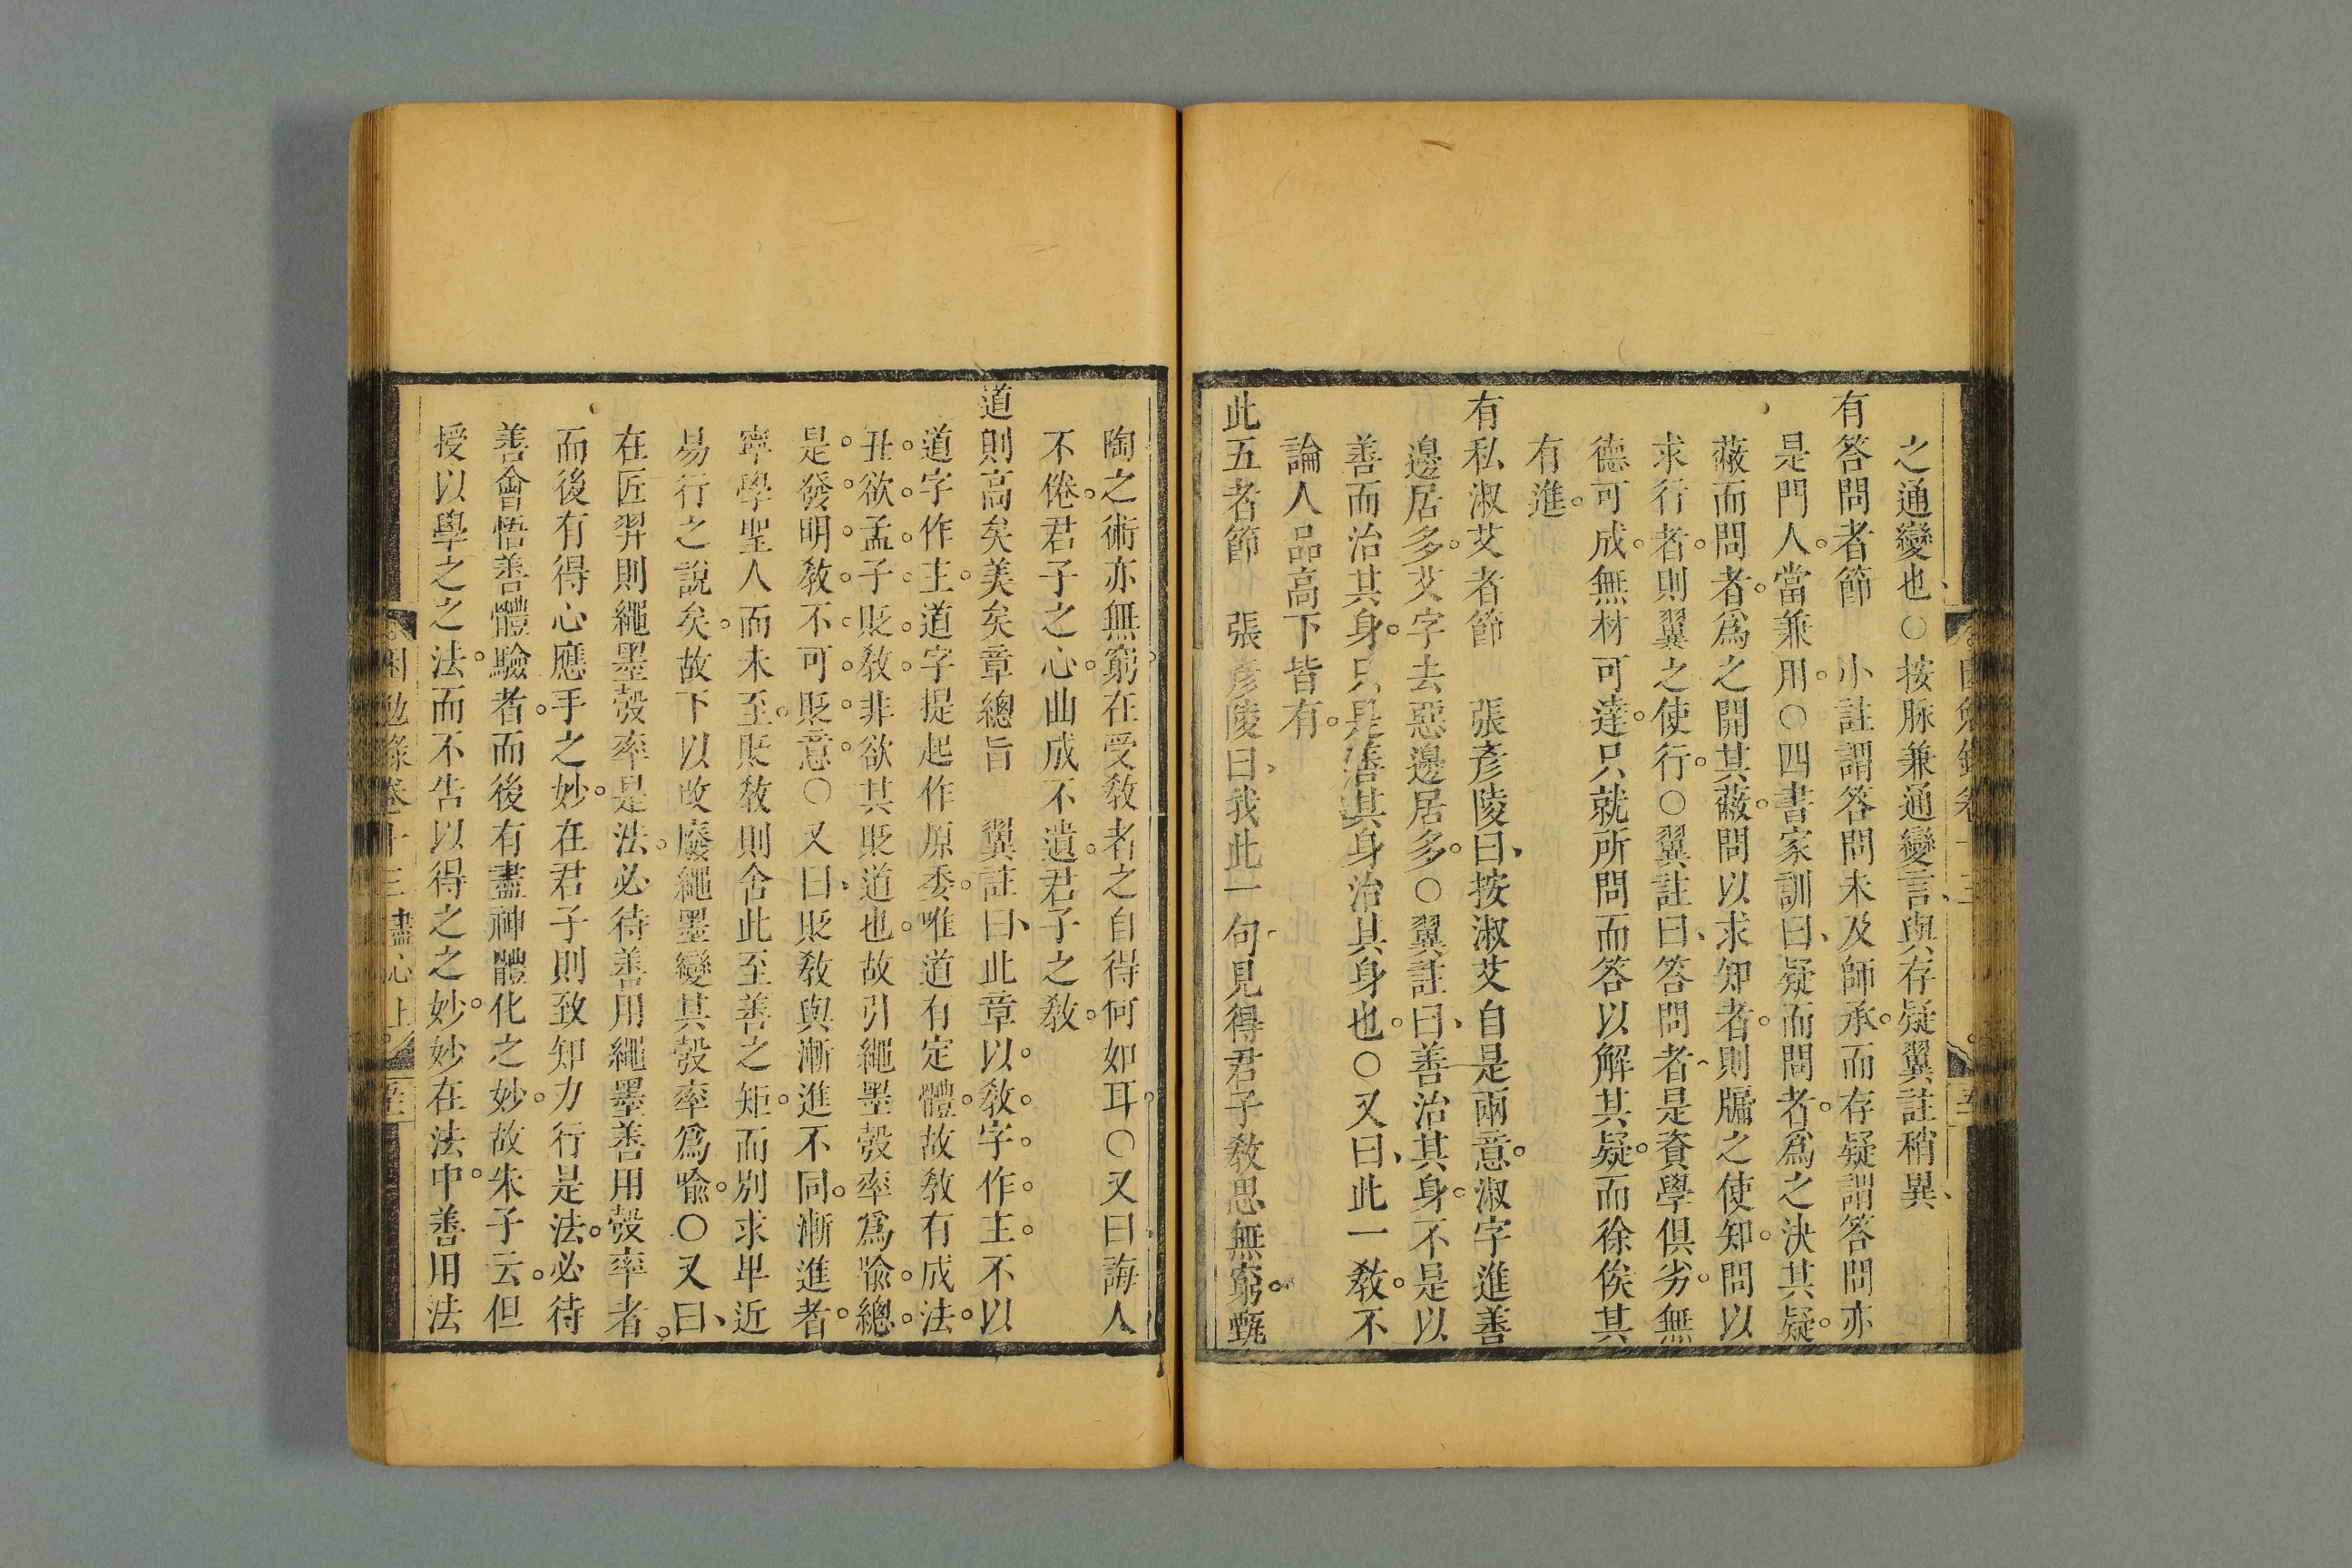 之通變也○按脉兼通變言、與存疑翼註稍異、
有答問者節　小註謂答問未及師承。而存疑謂答問亦
是門人。當兼用。○四書家訓曰、疑而問者。爲之決其疑。
蔽而問者。爲之開其蔽。問以求知者。則牖之使知。問以
求行者。則翼之使行。○翼註曰、答問者是資學俱劣。無
德可成。無材可達。只就所問而答以解其疑。而徐俟其
有進。
有私淑艾者節　張彥陵曰、按淑艾自是兩意。淑字進善
邊居多。艾字去惡邊居多。○翼註曰、善治其身。不是以
善而治其身。只是善其身治其身也。○又曰、此一教。不
論人品高下皆有。
此五者節　張彥陵曰、我此一句見得君子教思無窮。甄
陶之術亦無窮。在受教者之自得何如耳。○又曰誨人
不倦。君子之心。曲成不遺。君子之教。
道則高矣美矣章總旨　翼註曰、此章以教字作主。不以
道字作主。道字提起作原委。唯道有定體。故教有成法。
丑欲孟子貶教。非欲其貶道也。故引繩墨彀率爲喩。總
是發明教不可貶意。○又曰、貶教與漸進不同。漸進者。
寧學聖人而未至。貶教則舍此至善之矩。而別求卑近
易行之說矣。故下以改廢繩墨變其彀率爲喩。○又曰、
在匠羿則繩墨彀率是法。必待善用繩墨善用彀率者。
而後有得心應手之妙。在君子則致知力行是法。必待
善會悟善體驗者。而後有盡神體化之妙。故朱子云。但
授以學之之法。而不告以得之之妙。妙在法中。善用法
困勉錄卷十三 盡心上